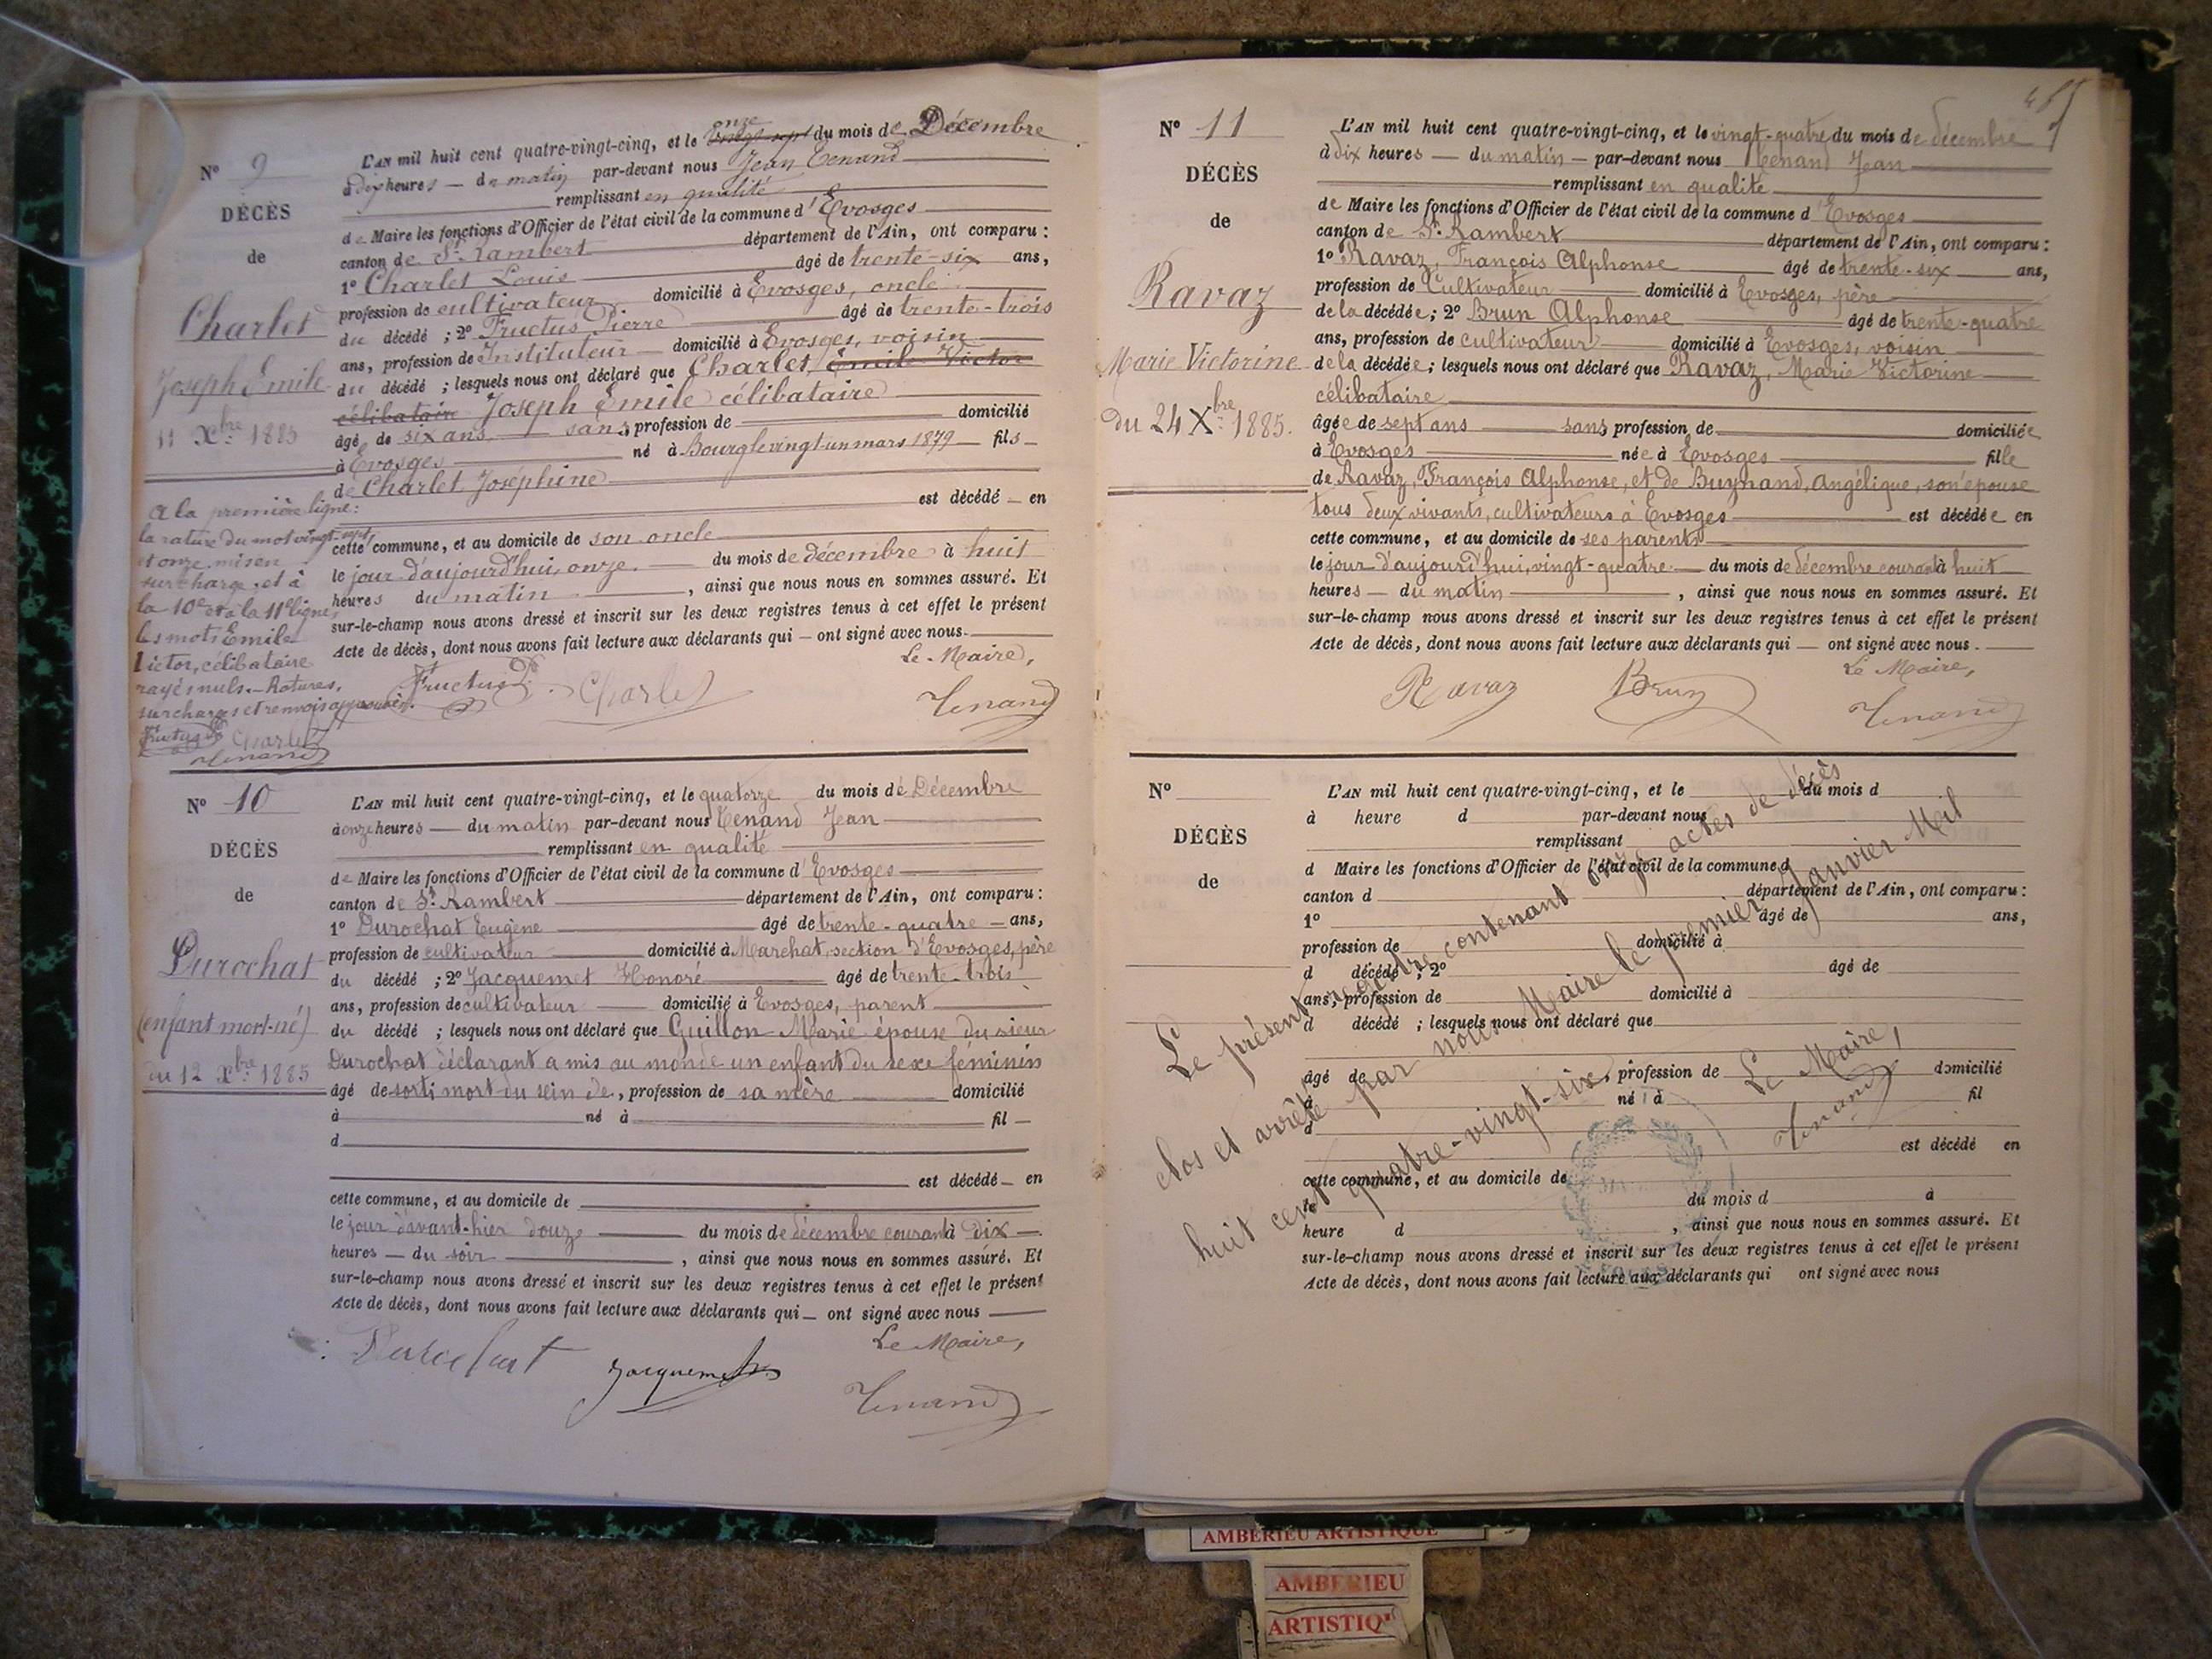 N° 9
DÉCÈS
de
Charlet
Joseph Emile
11 Xbre 1885
A la première ligne:
la rature du mot vingt-sept,
et onze mis en
surcharge, et à
la 10e et à la 11e ligne,
les mots Emile
Victor, célibataire
rayés nuls. - Ratures,
surcharges et renvois approuvés.
Fructus Charlet
Tenand
L'AN mil huit cent quatre-vingt-cinq, et le onze vingt-sept du mois de Décembre
à dix heures — du matin par-devant nous Jean Tenand
remplissant en qualité
de Maire les fonctions d'Officier de l'état civil de la commune d'Evosges
canton de St Rambert département de l'Ain, ont comparu :
1° Charlet Louis âgé de trente-six ans,
profession de cultivateur domicilié à Evosges, oncle
du décédé ; 2° Fructus Pierre âgé de trente-trois
ans, profession de Instituteur domicilié à Evosges, voisin
du décédé ; lesquels nous ont déclaré que Charlet, Emile Victor
célibataire Joseph Emile célibataire
âgé de six ans sans profession de domicilié
à Evosges né à Bourg le vingt-un mars 1879 fils
de Charlet Joséphine
est décédé en
cette commune, et au domicile de son oncle
le jour d'aujourd'hui, onze du mois de décembre à huit
heures du matin , ainsi que nous nous en sommes assuré. Et
sur-le-champ nous avons dressé et inscrit sur les deux registres tenus à cet effet le présent
Acte de décès, dont nous avons fait lecture aux déclarants qui — ont signé avec nous.
Le Maire,
Fructus P. Charlet Tenand
N° 10
DÉCÈS
de
Durochat
(enfant mort-né)
du 12 Xbre 1885
L'AN mil huit cent quatre-vingt-cinq, et le quatorze du mois de Décembre
à onze heures — du matin par-devant nous Tenand Jean
remplissant en qualité
de Maire les fonctions d'Officier de l'état civil de la commune d'Evosges
canton de St Rambert département de l'Ain, ont comparu :
1° Durochat Eugène âgé de trente-quatre — ans,
profession de cultivateur domicilié à Marchat, section d'Evosges, père
du décédé ; 2° Jacquemet Honoré âgé de trente-trois
ans, profession de cultivateur domicilié à Evosges, parent
du décédé ; lesquels nous ont déclaré que Guillon Marie épouse du sieur
Durochat déclarant a mis au monde un enfant du sexe féminin
âgé de sorti mort du sein de, profession de sa mère domicilié
à né à fil
d
est décédé en
cette commune, et au domicile de
le jour d'avant-hier douze du mois de décembre courant à dix
heures — du soir , ainsi que nous nous en sommes assuré. Et
sur-le-champ nous avons dressé et inscrit sur les deux registres tenus à cet effet le présent
Acte de décès, dont nous avons fait lecture aux déclarants qui — ont signé avec nous
Le Maire,
Durochat Jacquemet Tenand
N° 11
DÉCÈS
de
Ravaz
Marie Victorine
du 24 Xbre 1885.
L'AN mil huit cent quatre-vingt-cinq, et le vingt-quatre du mois de décembre
à dix heures — du matin — par-devant nous Tenand Jean
remplissant en qualité
de Maire les fonctions d'Officier de l'état civil de la commune d'Evosges
canton de St Rambert département de l'Ain, ont comparu :
1° Ravaz, François Alphonse âgé de trente-six ans,
profession de Cultivateur domicilié à Evosges, père
de la décédée ; 2° Brun Alphonse âgé de trente-quatre
ans, profession de cultivateur domicilié à Evosges, voisin
de la décédée ; lesquels nous ont déclaré que Ravaz, Marie Victorine
célibataire
âgée de sept ans sans profession de domiciliée
à Evosges née à Evosges fille
de Ravaz, François Alphonse, et de Buynand, Angélique, son épouse
tous deux vivants, cultivateurs à Evosges est décédée en
cette commune, et au domicile de ses parents
le jour d'aujourd'hui, vingt-quatre du mois de décembre courant à huit
heures — du matin , ainsi que nous nous en sommes assuré. Et
sur-le-champ nous avons dressé et inscrit sur les deux registres tenus à cet effet le présent
Acte de décès, dont nous avons fait lecture aux déclarants qui — ont signé avec nous.
Le Maire,
Ravaz Brun Tenand
N°
DÉCÈS
de
L'AN mil huit cent quatre-vingt-cinq, et le du mois d
à heure d par-devant nous
remplissant
d Maire les fonctions d'Officier de l'état civil de la commune d
canton d département de l'Ain, ont comparu :
1° âgé de ans,
profession de domicilié à
d décédé ; 2° âgé de
ans, profession de domicilié à
d décédé ; lesquels nous ont déclaré que
âgé de , profession de domicilié
à né à fil
d
est décédé en
cette commune, et au domicile de
le du mois d à
heure d , ainsi que nous nous en sommes assuré. Et
sur-le-champ nous avons dressé et inscrit sur les deux registres tenus à cet effet le présent
Acte de décès, dont nous avons fait lecture aux déclarants qui ont signé avec nous
Le présent registre contenant onze actes de décès
clos et arrêté par nous Maire le premier Janvier Mil
huit cent quatre-vingt-six.
Le Maire,
Tenand
AMBERIEU ARTISTIQUE
AMBERIEU
ARTISTIQ